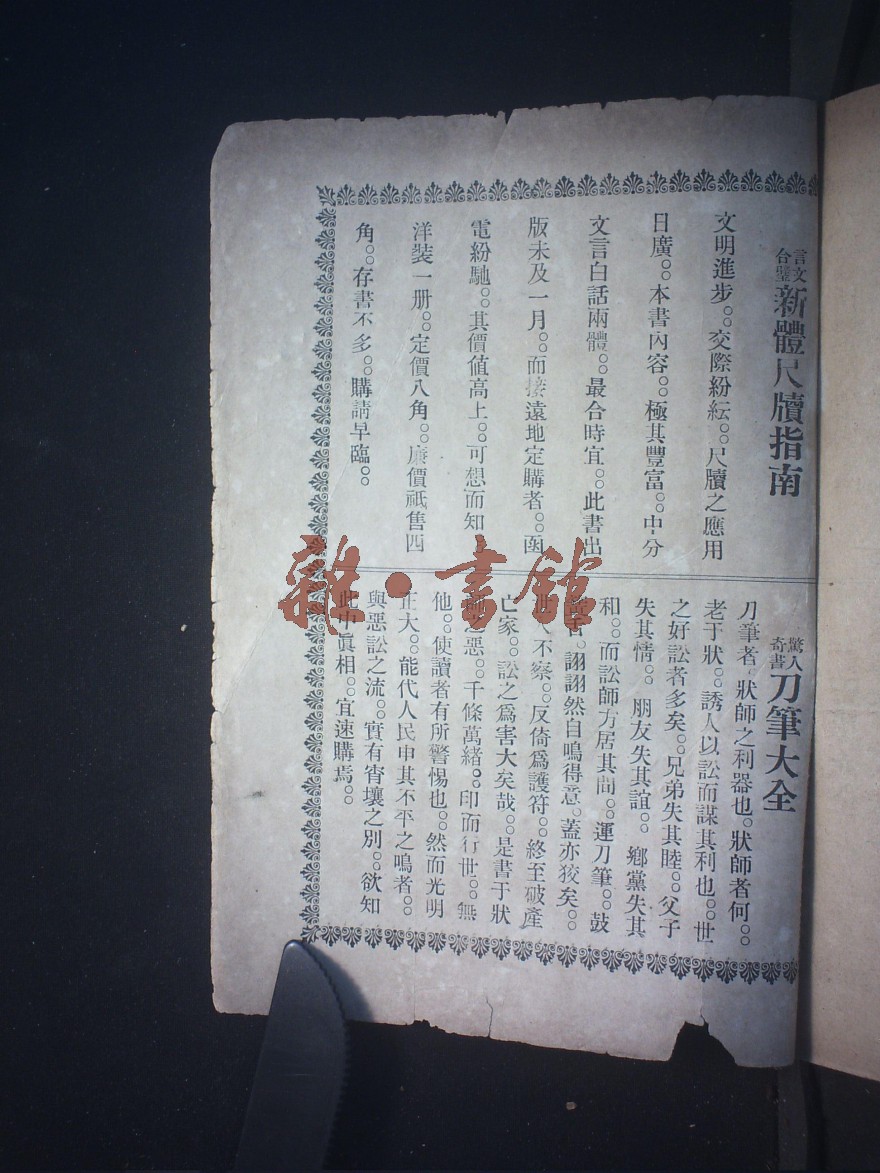 言文合璧 新體尺牘指南
文明進步。。交際紛紜。。尺牘之應用
日廣。。本書內容。。極其豐富。。中分
文言白話兩體。。最合時宜。。此書出
版未及一月。。而接遠地定購者。。函
電紛馳。。其價值高上。。可想而知
洋裝一册。。定價八角。。廉價祇售四
角。。存書不多。。購請早臨。。
驚人奇書 刀筆大全
刀筆者、狀師之利器也。狀師者何。。
老于狀。。誘人以訟而謀其利也。。世
之好訟者多矣。。兄弟失其睦。。父子
失其情。。朋友失其誼。。鄉黨失其
和。。而訟師方居其間。。運刀筆。。鼓
舌。詡詡然自鳴得意。蓋亦狡矣。。
人不察。。反倚爲護符。。終至破產
亡家。。訟之爲害大矣哉。。是書于狀
師之惡。。千條萬緒。。印而行世。。無
他。。使讀者有所警惕也。。然而光明
正大。。能代人民申其不平之鳴者。。
與惡訟之流。。實有宵壤之別。。欲知
此中眞相。。宜速購焉。。
雜·書館